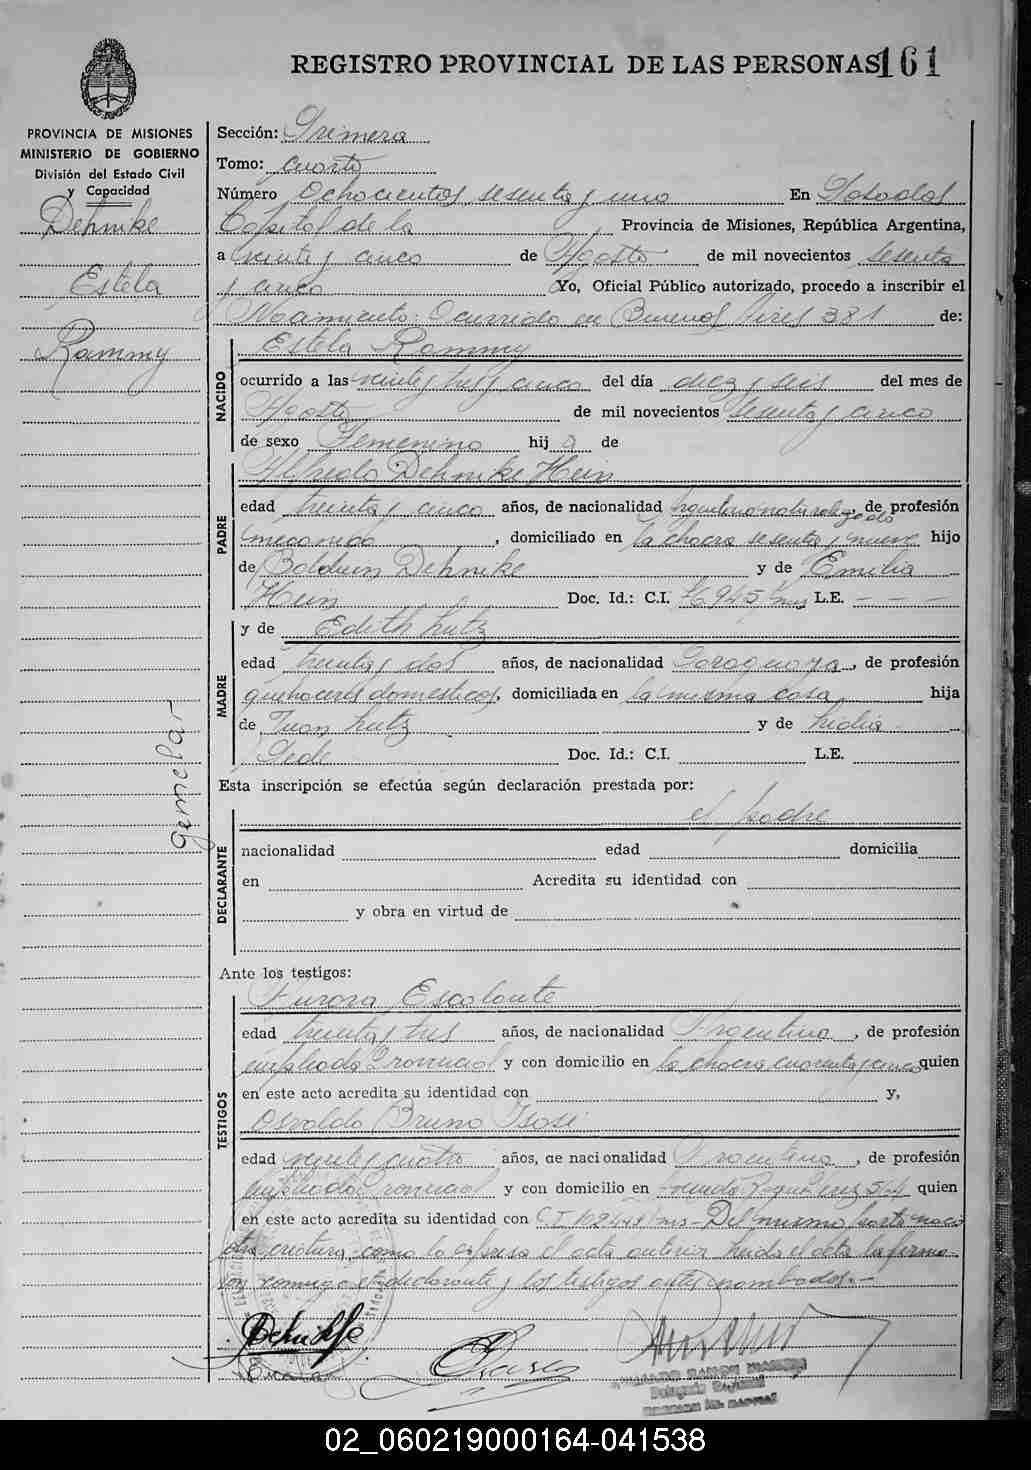 REGISTRO PROVINCIAL DE LAS PERSONAS 161
PROVINCIA DE MISIONES
MINISTERIO DE GOBIERNO
División del Estado Civil
y Capacidad
Dehnike
Estela
Rammy
gemelar
Sección: Primera
Tomo: cuarto
Número Ochocientos sesenta y uno En Posadas
Capital de la Provincia de Misiones, República Argentina,
a veinte y cinco de Agosto de mil novecientos sesenta
y cinco Yo, Oficial Público autorizado, procedo a inscribir el
Nacimiento: Ocurrido en Buenos Aires 381 de:
NACIDO
Estela Rammy
ocurrido a las veinte y tres y cinco del día diez y seis del mes de
Agosto de mil novecientos sesenta y cinco
de sexo Femenino hij a de
PADRE
Alfredo Dehnike Hein
edad treinta y cinco años, de nacionalidad Argentino naturalizado, de profesión
mecanico, domiciliado en la chacra sesenta y nueve hijo
de Balduin Dehnike y de Emilia
Hein Doc. Id.: C.I. L.E. - - -
y de Edith Lutz
MADRE
edad treinta y dos años, de nacionalidad Paraguaya, de profesión
quehaceres domesticos, domiciliada en la misma casa hija
de Juan Lutz y de Lidia
Doc. Id.: C.I. L.E.
Esta inscripción se efectúa según declaración prestada por:
el padre
DECLARANTE
nacionalidad edad domicilia
en Acredita su identidad con
y obra en virtud de
Ante los testigos:
TESTIGOS
Aurora Escalante
edad treinta y tres años, de nacionalidad Argentina, de profesión
empleada Provincial y con domicilio en la chacra cuarenta y cinco quien
en este acto acredita su identidad con y,
Osvaldo Bruno
edad veinte y cuatro años, de nacionalidad Argentina, de profesión
empleado Provincial y con domicilio en quien
en este acto acredita su identidad con C.I. Del mismo parto nacio
otra criatura, como lo expresa el acta anterior leida el acta la firma-
ron conmigo el declarante y los testigos antes nombrados.-
Dehnike
02_060219000164-041538